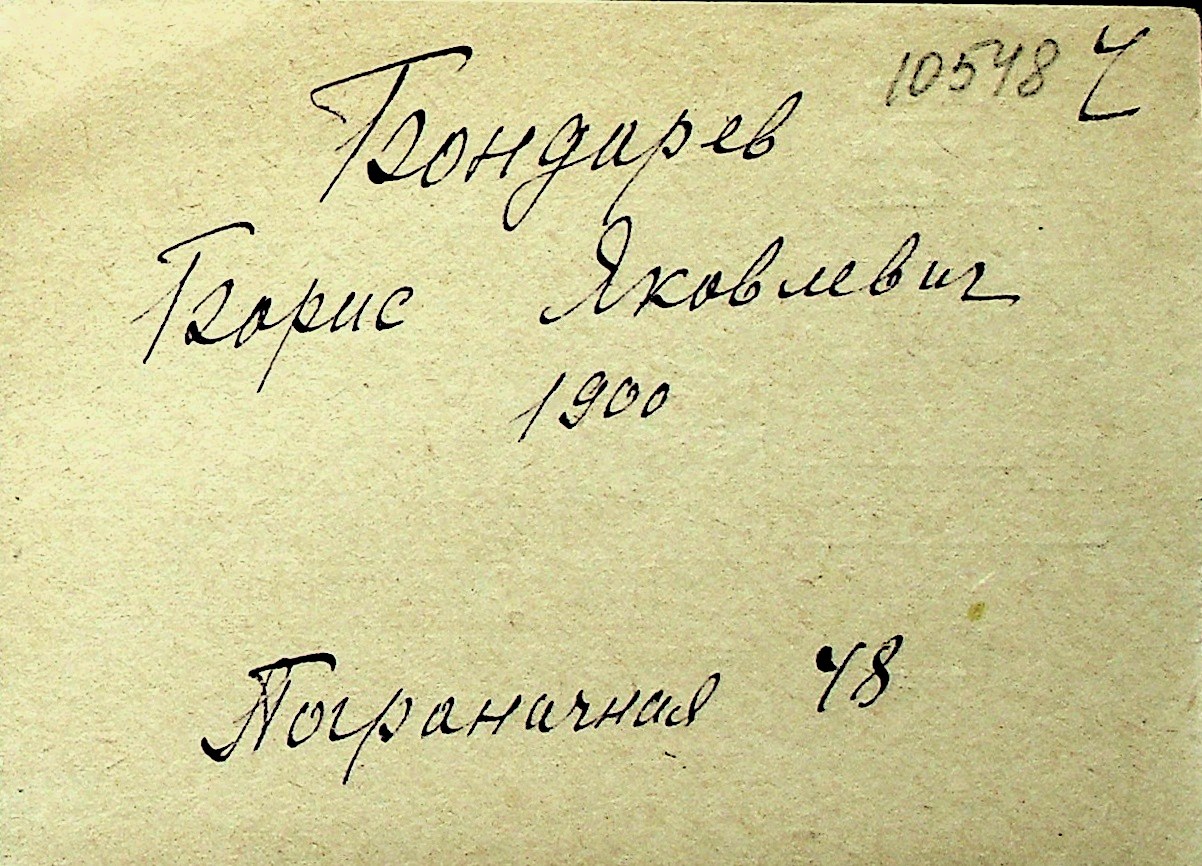 10548 Ч
Бондарев
Борис Яковлевич
1900
Пограничная 48